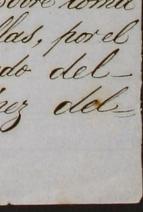 sobre toma
llas, por el
do del-
hez del-